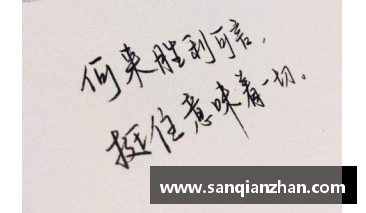 何来胜利可言，
挺住意味着一切。
www.sanqianzhan.com